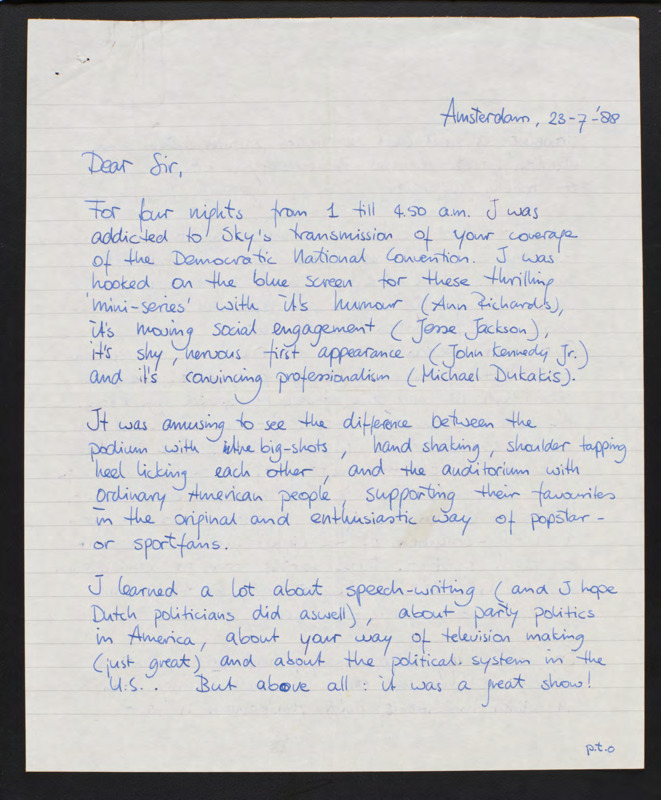 Amsterdam, 23-7-'88
Dear Sir,
For four nights from 1 till 4.50 a.m. I was
addicted to Sky's transmission of your coverage
of the Democratic National Convention. I was
hooked on the blue screen for these thrilling
'mini-series' with it's humour (Ann Richards),
it's moving social engagement (Jesse Jackson),
it's shy, nervous first appearance (John Kennedy Jr.)
and it's convincing professionalism (Michael Dukakis).
It was amusing to see the difference between the
podium with the big-shots, hand shaking, shoulder tapping
heel licking each other, and the auditorium with
ordinary American people, supporting their favourites
in the original and enthusiastic way of popstar-
or sportfans.
I learned a lot about speech-writing (and I hope
Dutch politicians did aswell), about party politics
in America, about your way of television making
(just great) and about the political system in the
U.S.. But above all: it was a great show!
p.t.o